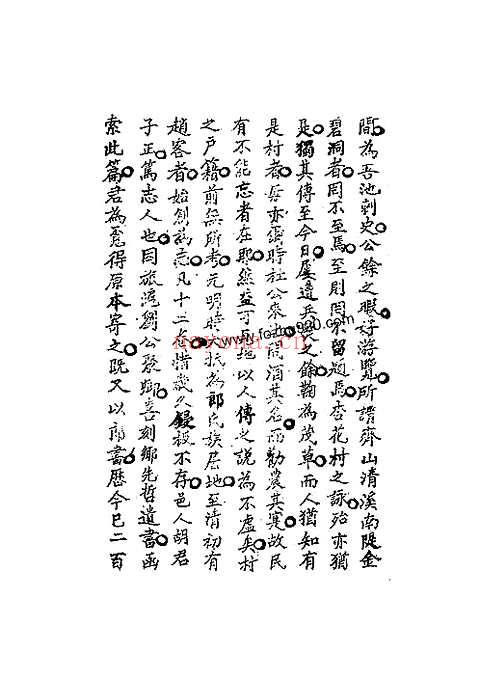 間為吾池刺史公餘之暇好游覽所謂齊山清溪南隄金
碧洞者罔不至焉至則罔不留題焉杏花村之詠殆亦猶
是獨其傳至今日屢遭兵燹之餘鞠為茂草而人猶知有
是村者吾亦謂時杜公來問酒其名而勸農其寔故民
有不能忘者在耶然益可見地以人傳之說為不虛矣村
之戶籍前無所考元明時執為郎氏族居地至清初有
趙客者始創為志凡十二卷惜歲久錢板不存邑人胡君
子正篤志人也同旅滬劉公聚卿喜刻鄉先哲遺書函
索此篇君為覓得原本寄之既又以郎書歷今已二百